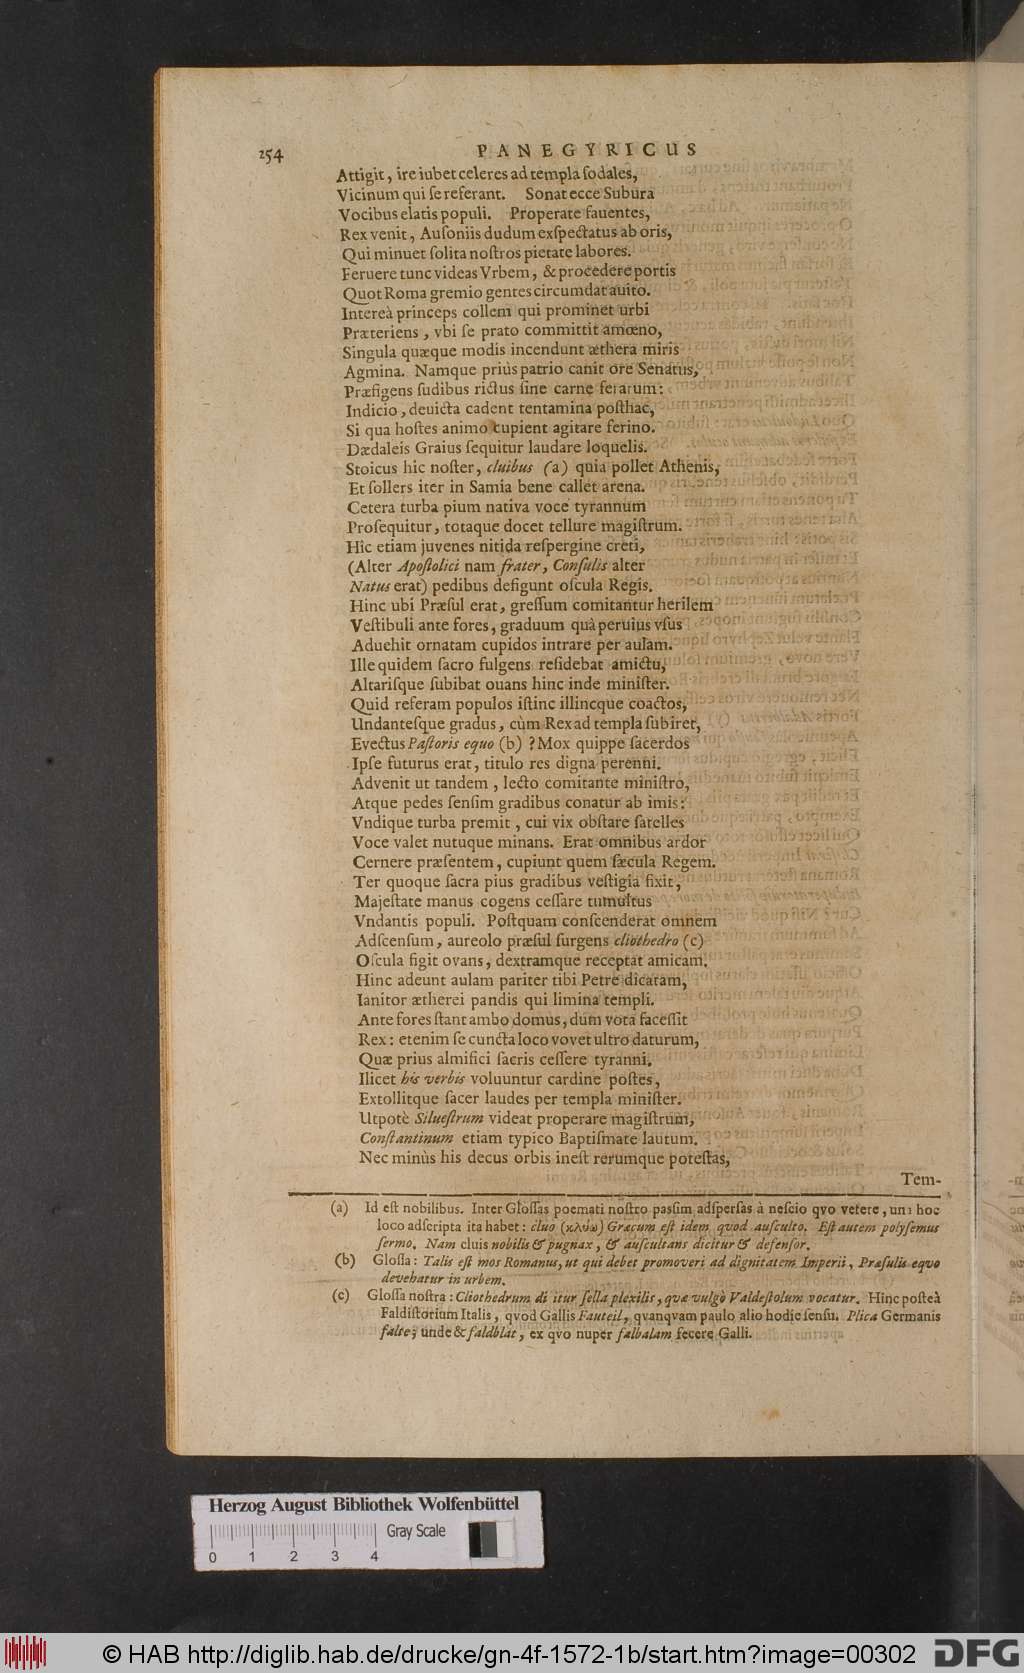 254 PANEGYRICUS
Attigit, ire iubet celeres ad templa sodales,
Vicinum qui se referant. Sonat ecce Subura
Vocibus elatis populi. Properate fauentes,
Rex venit, Ausoniis dudum exspectatus ab oris,
Qui minuet solita nostros pietate labores.
Feruere tunc videas Vrbem, & procedere portis
Quot Roma gremio gentes circumdat auito.
Intereà princeps collem qui prominet urbi
Præteriens, vbi se prato committit amœno,
Singula quæque modis incendunt æthera miris
Agmina. Namque priùs patrio canit ore Senatus,
Præfigens sudibus rictus sine carne ferarum:
Indicio, deuicta cadent tentamina posthac,
Si qua hostes animo cupient agitare ferino.
Dædaleis Graius sequitur laudare loquelis.
Stoicus hic noster, cluibus (a) quia pollet Athenis,
Et sollers iter in Samia bene callet arena.
Cetera turba pium nativa voce tyrannum
Prosequitur, totaque docet tellure magistrum.
Hic etiam juvenes nitida respergine creti,
(Alter Apostolici nam frater, Consulis alter
Natus erat) pedibus defigunt oscula Regis.
Hinc ubi Præsul erat, gressum comitantur herilem
Vestibuli ante fores, graduum quà peruius vsus
Aduehit ornatam cupidos intrare per aulam.
Ille quidem sacro fulgens residebat amictu,
Altarisque subibat ouans hinc inde minister.
Quid referam populos istinc illincque coactos,
Undantesque gradus, cùm Rex ad templa subiret,
Evectus Pastoris equo (b) ? Mox quippe sacerdos
Ipse futurus erat, titulo res digna perenni.
Advenit ut tandem, lecto comitante ministro,
Atque pedes sensim gradibus conatur ab imis:
Vndique turba premit, cui vix obstare satelles
Voce valet nutuque minans. Erat omnibus ardor
Cernere præsentem, cupiunt quem sæcula Regem.
Ter quoque sacra pius gradibus vestigia fixit,
Majestate manus cogens cessare tumultus
Vndantis populi. Postquam conscenderat omnem
Adscensum, aureolo præsul surgens cliothedro (c)
Oscula figit ovans, dextramque receptat amicam.
Hinc adeunt aulam pariter tibi Petre dicatam,
Ianitor ætherei pandis qui limina templi.
Ante fores stant ambo domus, dum vota facessit
Rex: etenim se cuncta loco vovet ultro daturum,
Quæ prius almifici sacris cessere tyranni.
Ilicet his verbis voluuntur cardine postes,
Extollitque sacer laudes per templa minister.
Utpotè Siluestrum videat properare magistrum,
Constantinum etiam typico Baptismate lautum.
Nec minùs his decus orbis inest rerumque potestas,
Tem-
(a) Id est nobilibus. Inter Glossas poemati nostro passim adspersas à nescio qvo vetere, uni hoc
loco adscripta ita habet: cluo (κλύω) Græcum est idem qvod ausculto. Est autem polysemus
sermo. Nam cluis nobilis & pugnax, & auscultans dicitur & defensor.
(b) Glossa: Talis est mos Romanus, ut qui debet promoveri ad dignitatem Imperii, Præsulis eqvo
devehatur in urbem.
(c) Glossa nostra: Cliothedrum di itur sella plexilis, qvæ vulgò Valdestolum vocatur. Hinc posteà
Faldistorium Italis, qvod Gallis Fauteil, qvanqvam paulo alio hodie sensu. Plica Germanis
falte; unde & faldblat, ex qvo nuper falbalam fecere Galli.
Herzog August Bibliothek Wolfenbüttel
Gray Scale
0 1 2 3 4
© HAB http://diglib.hab.de/drucke/gn-4f-1572-1b/start.htm?image=00302 DFG